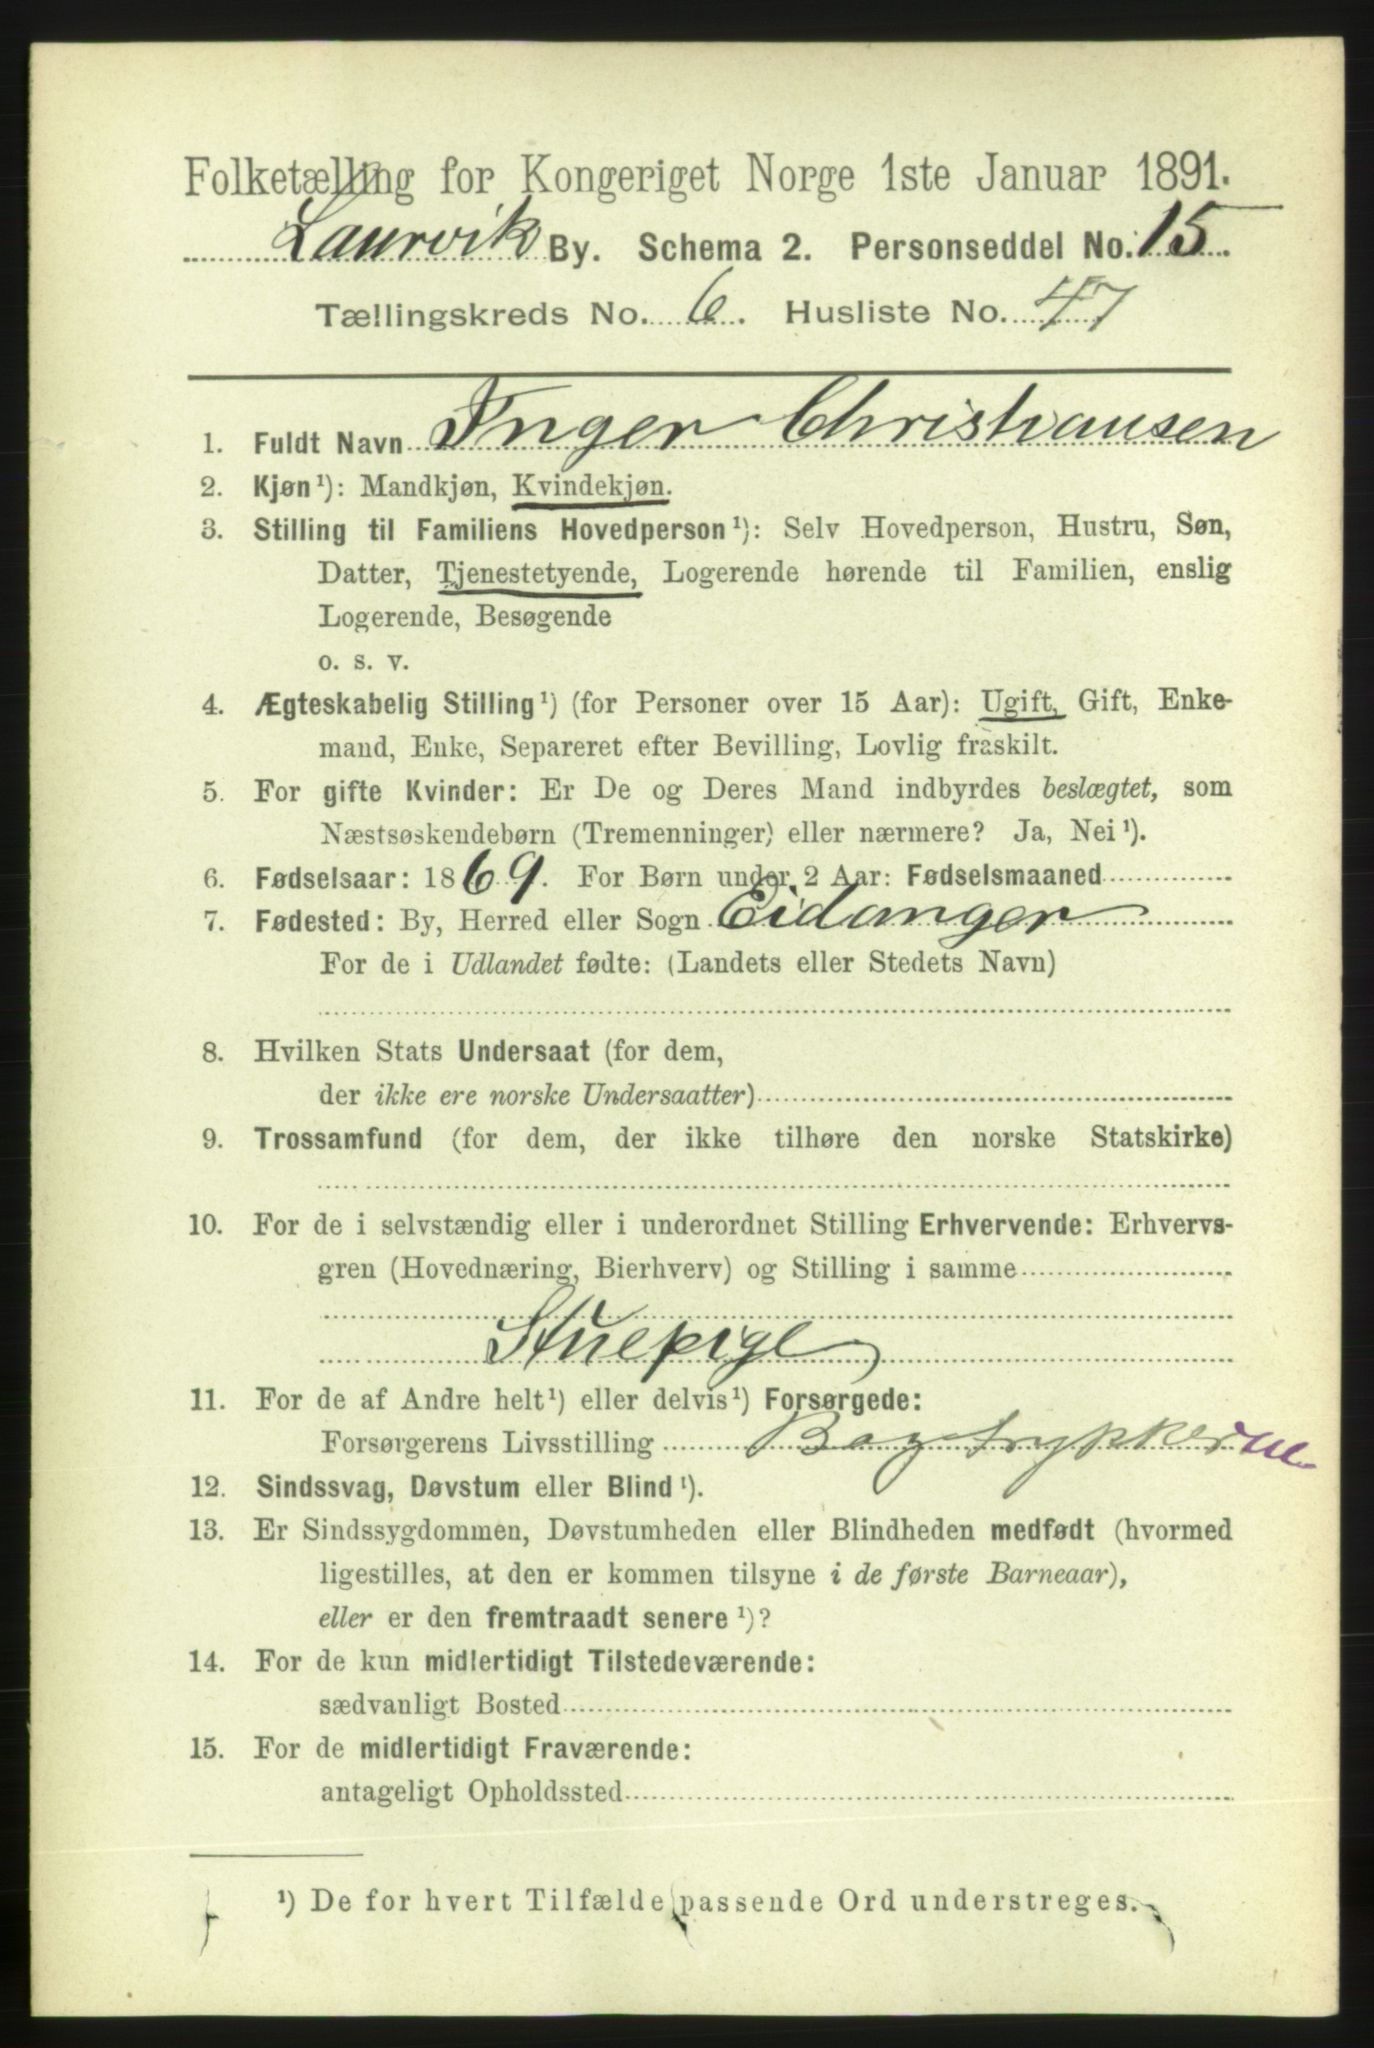 Folketælling for Kongeriget Norge 1ste Januar 1891.
Laurvik By. Schema 2. Personseddel No. 15.
Tællingskreds No. 6. Husliste No. 47
1. Fuldt Navn Inger Christiansen
2. Kjøn¹): Mandkjøn, Kvindekjøn.
3. Stilling til Familiens Hovedperson¹): Selv Hovedperson, Hustru, Søn,
Datter, Tjenestetyende, Logerende hørende til Familien, enslig
Logerende, Besøgende
o. s. v.
4. Ægteskabelig Stilling¹) (for Personer over 15 Aar): Ugift, Gift, Enke-
mand, Enke, Separeret efter Bevilling, Lovlig fraskilt.
5. For gifte Kvinder: Er De og Deres Mand indbyrdes beslægtet, som
Næstsøskendebørn (Tremenninger) eller nærmere? Ja, Nei¹).
6. Fødselsaar: 1869. For Børn under 2 Aar: Fødselsmaaned
7. Fødested: By, Herred eller Sogn Eidanger
For de i Udlandet fødte: (Landets eller Stedets Navn)
8. Hvilken Stats Undersaat (for dem,
der ikke ere norske Undersaatter)
9. Trossamfund (for dem, der ikke tilhøre den norske Statskirke)
10. For de i selvstændig eller i underordnet Stilling Erhvervende: Erhvervs-
gren (Hovednæring, Bierhverv) og Stilling i samme
Stuepige
11. For de af Andre helt¹) eller delvis¹) Forsørgede:
Forsørgerens Livsstilling Bogtrykker
12. Sindssvag, Døvstum eller Blind¹).
13. Er Sindssygdommen, Døvstumheden eller Blindheden medfødt (hvormed
ligestilles, at den er kommen tilsyne i de første Barneaar),
eller er den fremtraadt senere¹)?
14. For de kun midlertidigt Tilstedeværende:
sædvanligt Bosted
15. For de midlertidigt Fraværende:
antageligt Opholdssted
¹) De for hvert Tilfælde passende Ord understreges.